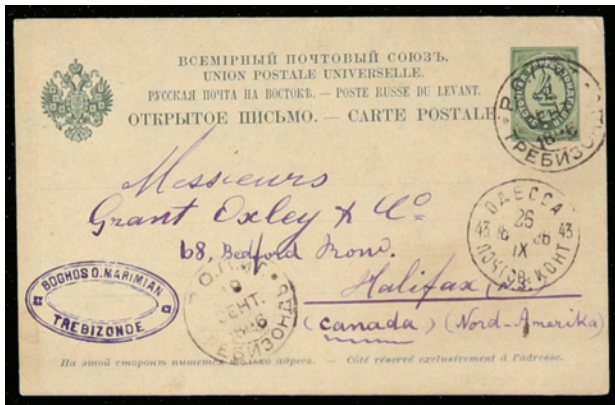 ВСЕМІРНЫЙ ПОЧТОВЫЙ СОЮЗЪ.
UNION POSTALE UNIVERSELLE.
РУССКАЯ ПОЧТА НА ВОСТОКѢ. — POSTE RUSSE DU LEVANT.
ОТКРЫТОЕ ПИСЬМО. — CARTE POSTALE
4
СЕНТ.
ТРЕБИЗО
Messieurs
Grant Oxley & Co
68, Bedford
Halifax
(Canada) (Nord-Amerika)
ОДЕССА
26
43 43
IX
ПОЧТОВ. КОНТ
BOGHOS O. MARIMIAN
TREBIZONDE
СЕНТ.
На этой сторонѣ пишется только адресъ. — Côté réservé exclusivement à l'adresse.